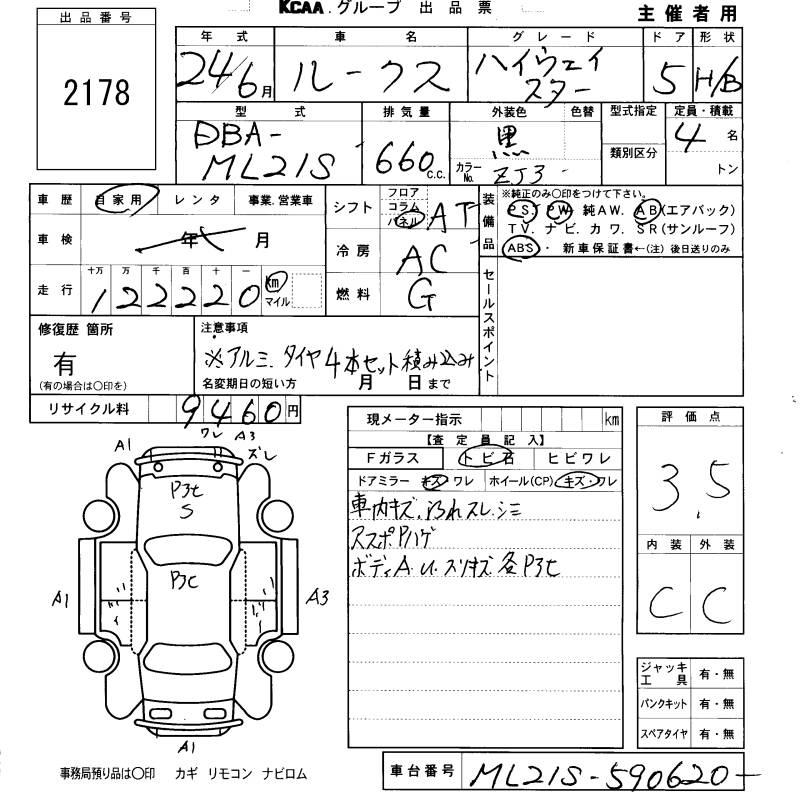 KCAA.グループ 出品票
主催者用
出品番号
2178
年式 車名 グレード ドア 形状
24/6月 ルークス ハイウェイスター 5 H/B
型式 排気量 外装色 色替 型式指定 定員・積載
DBA-
ML21S 660 C.C. 黒 カラーNo. ZJ3 類別区分 4名
トン
車歴 自家用 レンタ 事業.営業車
車検 年 月
走行 十万 万 千 百 十 一
122220 km マイル
シフト フロア コラム パネル AT
冷房 AC
燃料 G
装備品
※純正のみ○印をつけて下さい。
PS. PW. 純AW. AB(エアバック)
TV. ナビ. カワ. SR(サンルーフ)
ABS・ 新車保証書←(注)後日送りのみ
セールスポイント
修復歴 箇所
有
(有の場合は○印を)
注意事項
※アルミ.タイヤ4本セット積み込み
名変期日の短い方 月 日まで
リサイクル料 9460円
現メーター指示 km
【査定員記入】
Fガラス トビ石 ヒビワレ
ドアミラー キズ・ワレ ホイール(CP) キズ・ワレ
車内キズ.よごれスレ.シミ
アスポPハゲ
ボディA.U.スリキズ各P3セ
評価点
3.5
内装 外装
C C
A1
ワレ A3
ズレ
P3セ
S
P3C
A1
A3
A1
ジャッキ工具 有・無
パンクキット 有・無
スペアタイヤ 有・無
事務局預り品は○印 カギ リモコン ナビロム
車台番号 ML21S-590620